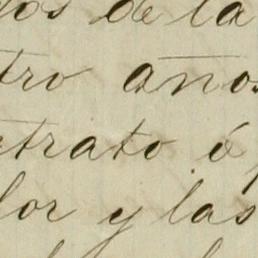 de la
años
trato ó
lor y las